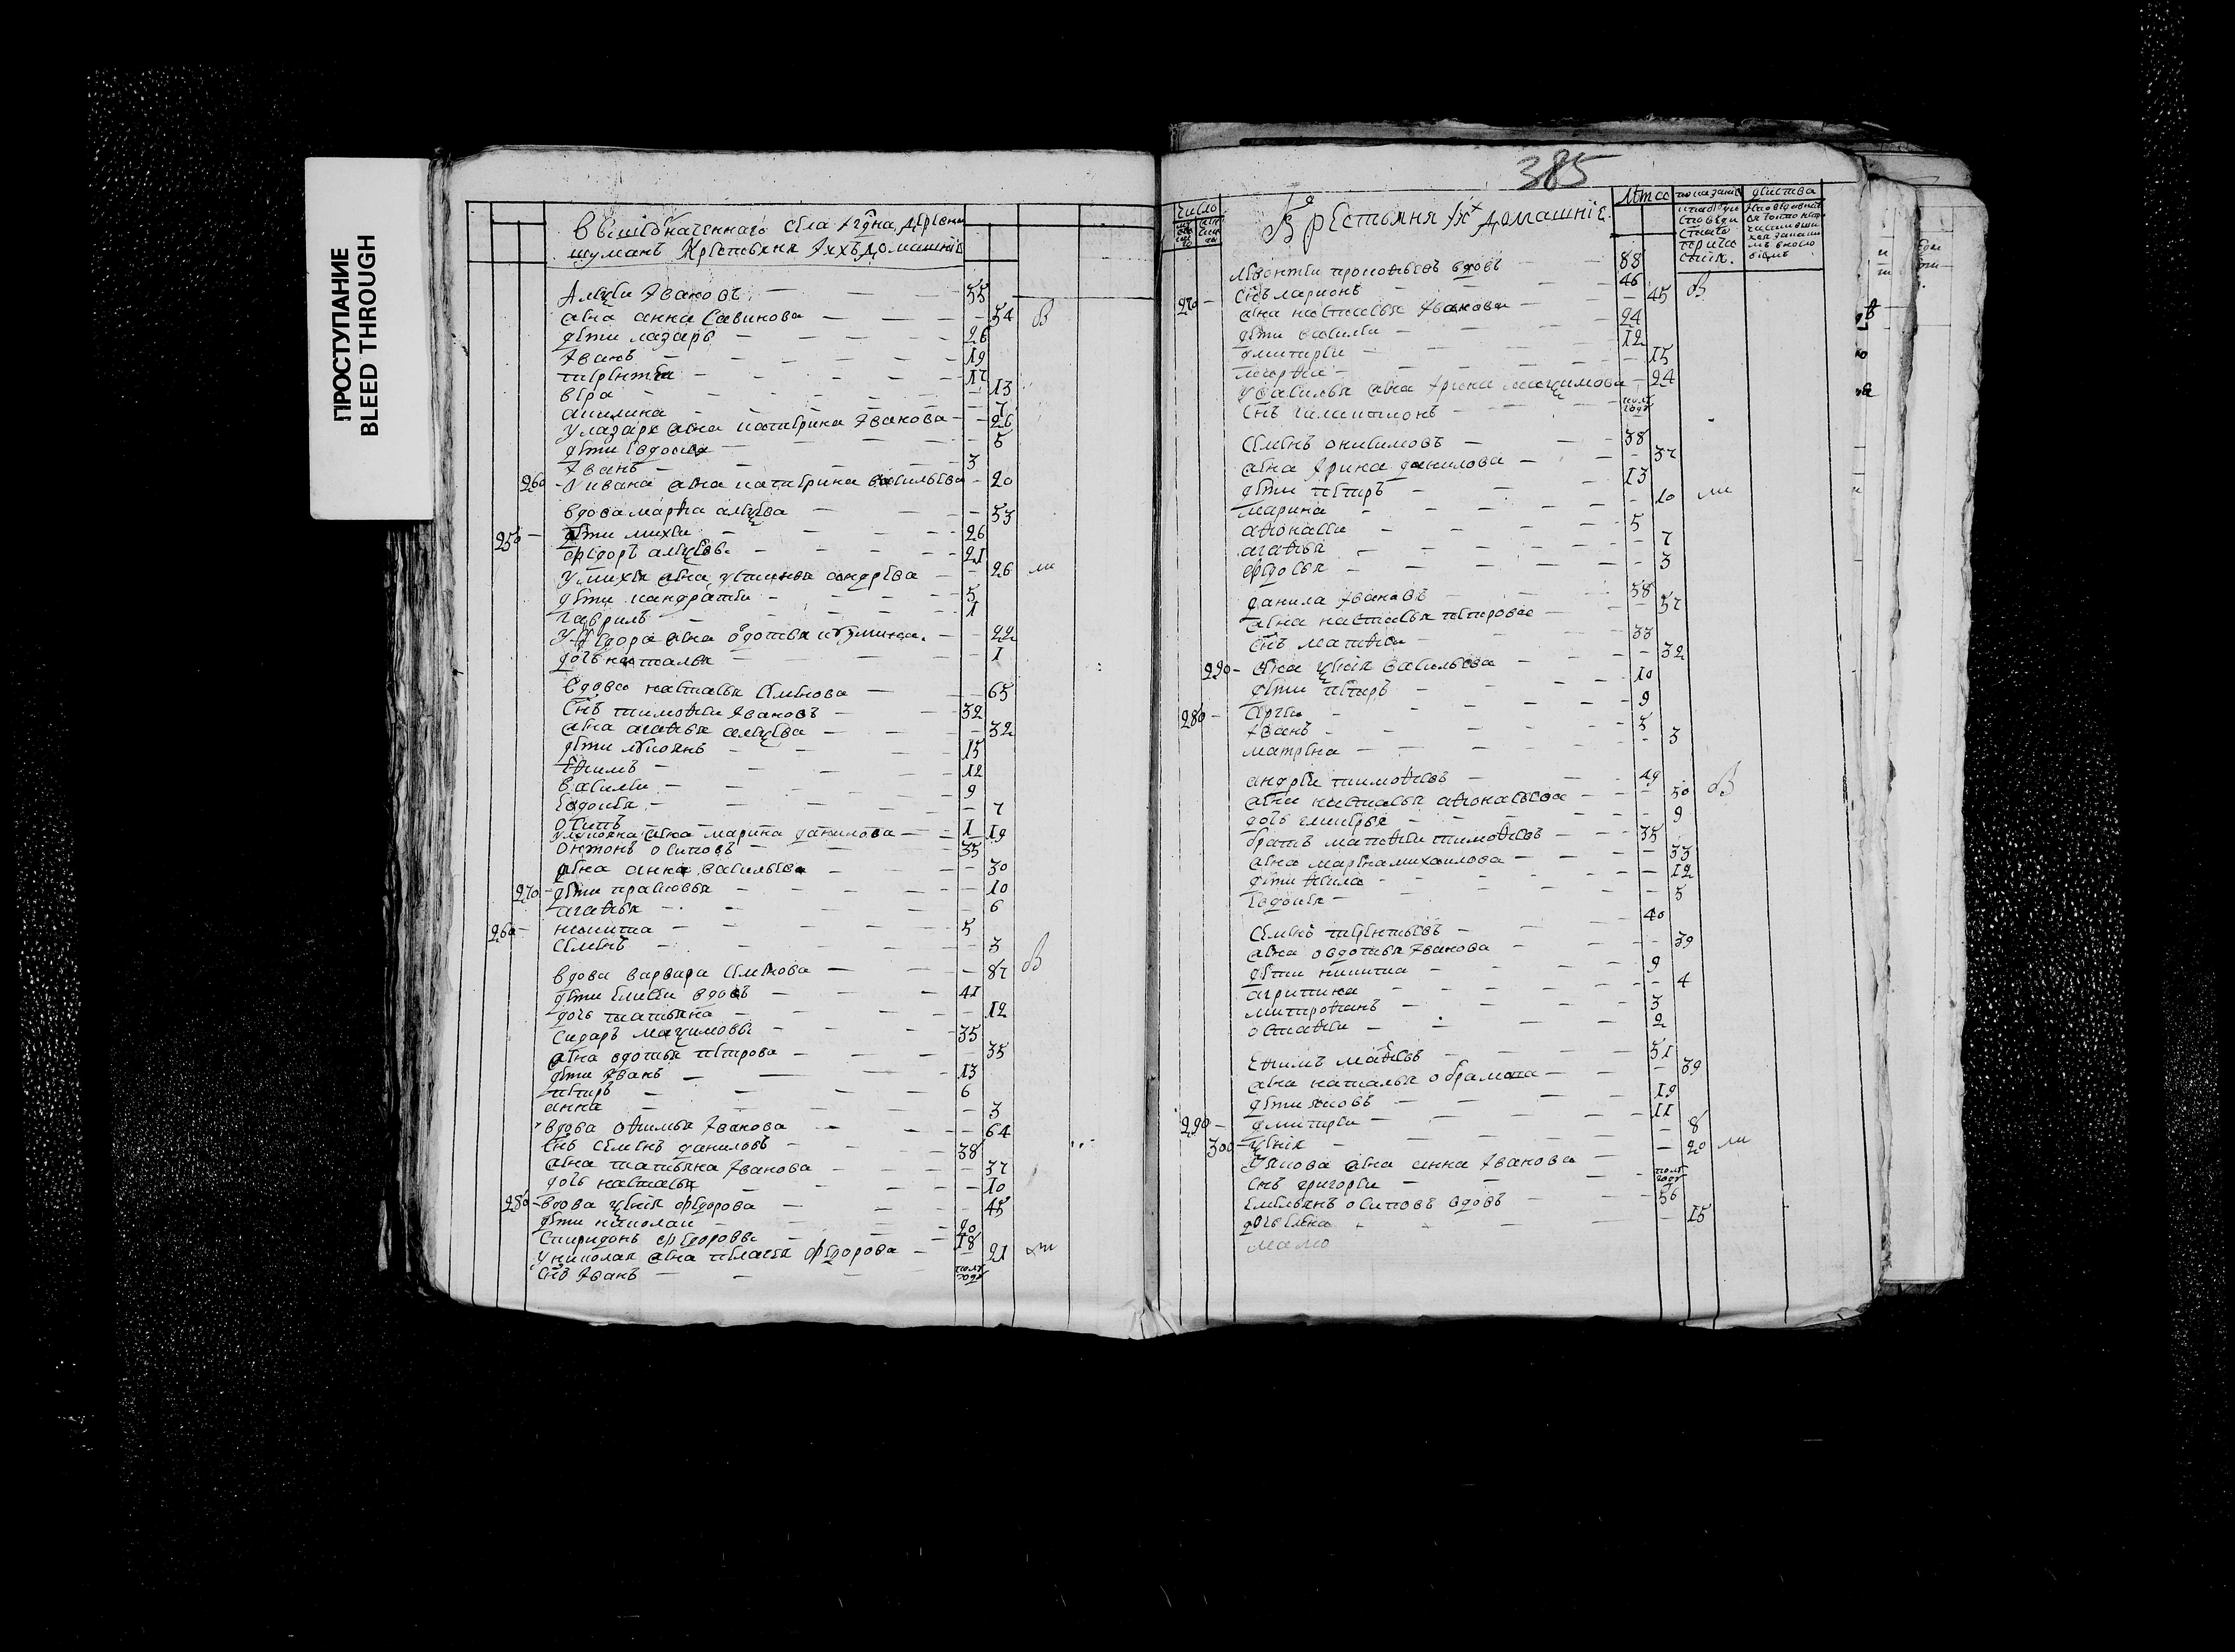 ПРОСТУПАНИЕ
BLEED THROUGH
385
села деревни
Крестьяня Іхъ домашніе
Алеѯеи Івановъ 55
жена анна савинова 54
дѣти лазаръ 26
Іванъ 19
терентеи 17
вера 13
акилина 7
У лазаря жена катерина Іванова 26
дѣти евдосия 5
Іванъ 3
260 У ивана жена катерина васильева 20
вдова марѳа алеѯева 53
250 дѣти михеи 26
ѳедоръ алеѯеевъ 21
У михея жена устинья андреева 26
дѣти кандратеи 5
гаврилъ 1
У ѳедора жена овдотья кузмина 22
дочь наталья 1
вдова настасья семенова 65
снъ тимоѳеи Івановъ 32
жена агаѳья алеѯева 32
дѣти лукоянъ 15
еѳимъ 12
василеи 9
евдокея 7
осипъ 1
У лукояна жена марина данилова 19
онтонъ осиповъ 35
жена анна васильева 30
270 дѣти прасковья 10
агаѳья 6
260 никита 5
семенъ 3
вдова варвара семенова 87
дѣти елисеи вдовъ 41
дочь татьяна 12
сидаръ маѯимовъ 35
жена овдотья петрова 35
дѣти Іванъ 13
петръ 6
анна 3
вдова оѳимья Іванова 64
снъ семенъ даниловъ 38
жена татьяна Іванова 37
дочь настасья 10
280 вдова ѯения ѳедорова 45
дѣти николаи 20
спиридонъ ѳедоровъ 18
У николая жена пелагея ѳедорова 21
снъ Іванъ полъ года
Число
Крестьяня Іхъ домашніе
Лѣта
Леонтеи прокоѳьевъ вдовъ 88
снъ ларионъ 46
270 жена настасья Іванова 45
дѣти василеи 24
дмитреи 12
У василья жена Ірина маѯимова 24
снъ полъ года
семенъ онисимовъ 38
жена Ірина данилова 37
дѣти петръ 13
марина 10
аѳонасеи 5
агаѳья 7
ѳедосья 3
данила Івановъ 58
жена настасья петрова 57
снъ матвеи 33
290 жена ѯения васильева 32
дѣти петръ 10
280 сергеи 9
Іванъ 5
матрена 3
андреи тимоѳеевъ 49
жена настасья аѳонасьева 50
дочь гликерья 9
братъ матвеи тимоѳеевъ 35
жена марья михаилова 33
дѣти ѳекла 12
евдокея 5
семенъ терентьевъ 40
жена овдотья Іванова 39
дѣти никита 9
агрипина 4
митроѳанъ 3
остаѳеи 2
еѳимъ матвеевъ 51
жена наталья обрамова 39
дѣти яковъ 19
290 дмитреи 11
300 ѯения 8
У якова жена анна Іванова 20
снъ григореи полъ года
емельянъ осиповъ вдовъ 56
дочь елена 15